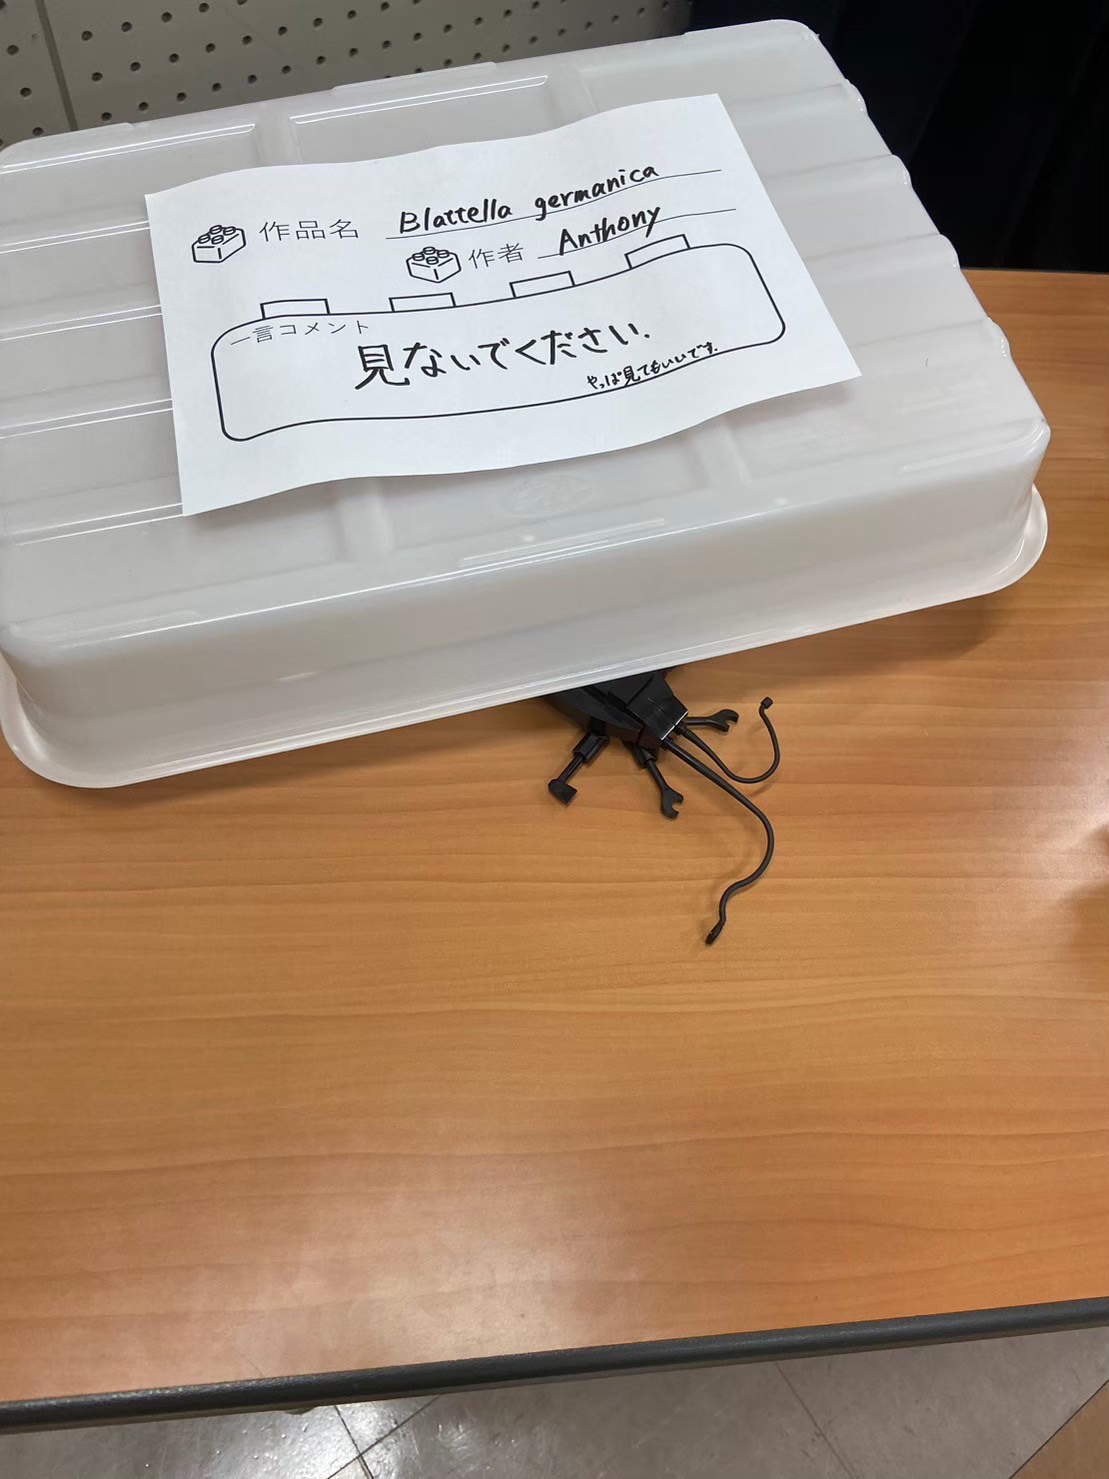 作品名 Blattella germanica
作者 Anthony
一言コメント
見ないでください.
やっぱ見てもいいです.